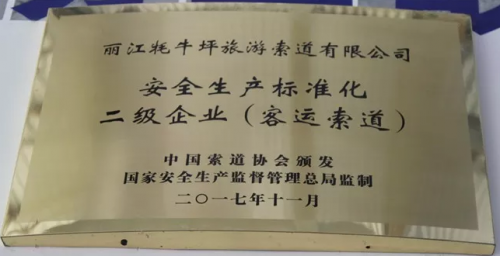 丽江牦牛坪旅游索道有限公司
安全生产标准化
二级企业（客运索道）
中国索道协会颁发
国家安全生产监督管理总局监制
二〇一七年十一月